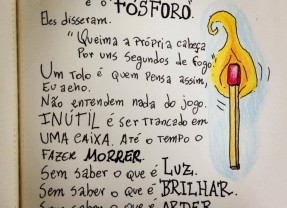 é o "FÓSFORO".
Eles disseram.
"Queima a própria cabeça
Por uns segundos de fogo."
Um tolo é quem pensa assim,
Eu acho.
Não entendem nada do jogo.
INÚTIL é ser trancado em
UMA CAIXA. Até o tempo o
FAZER MORRER.
Sem saber o que é LUZ.
Sem saber o que é BRILHAR.
Sem saber o que é ARDER